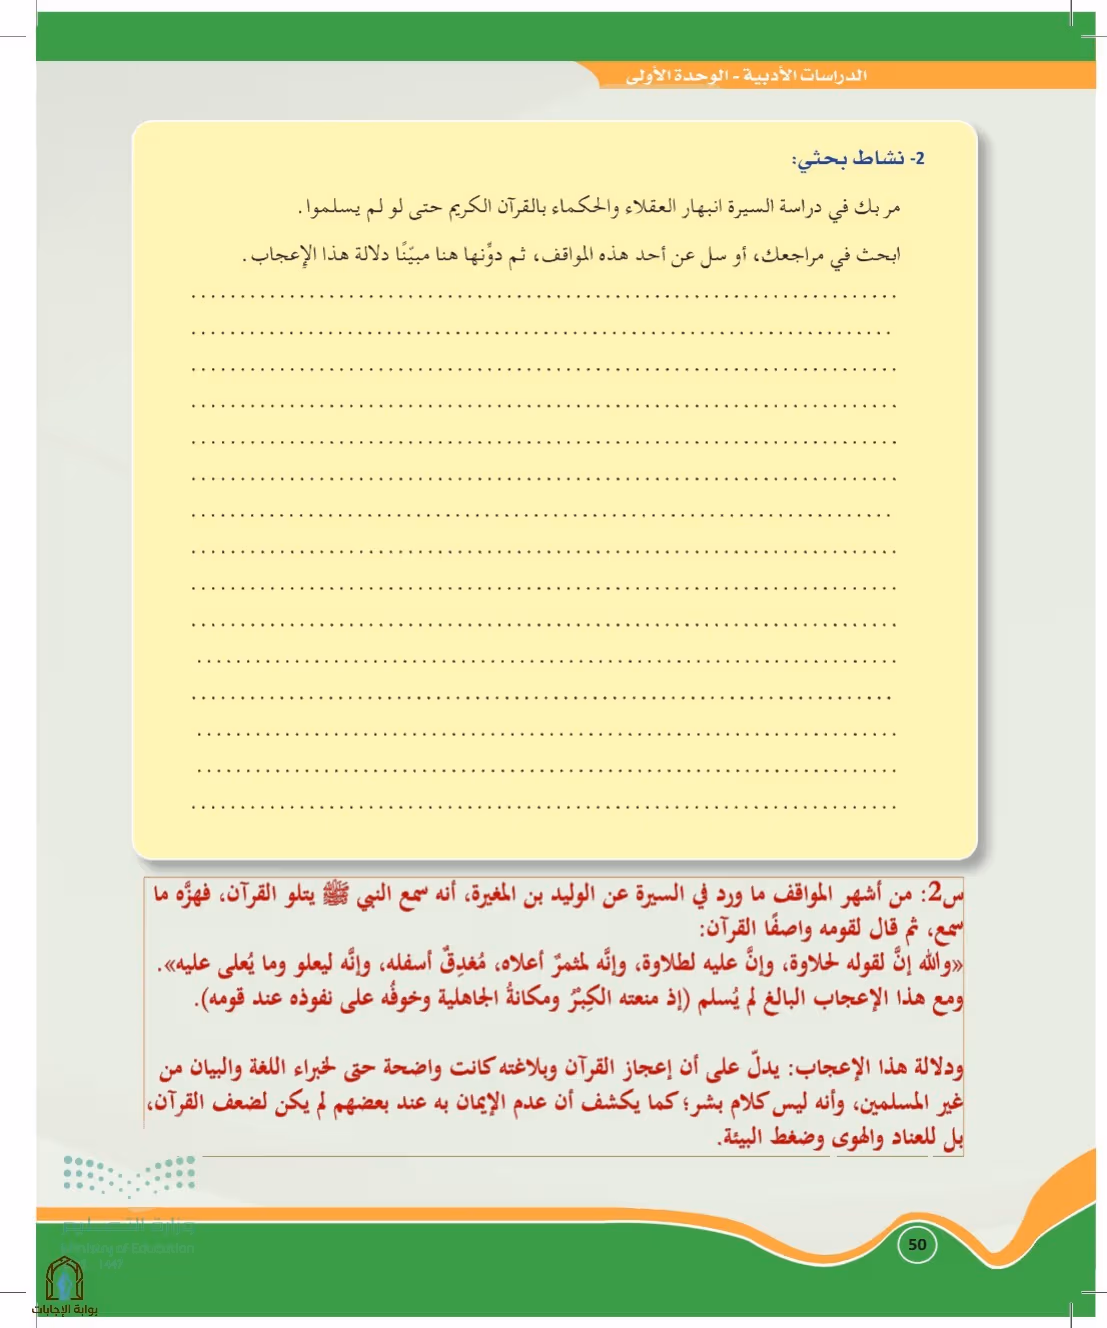 الدراسات الأدبية - الوحدة الأولى
2- نشاط بحثي:
مر بك في دراسة السيرة انبهار العقلاء والحكماء بالقرآن الكريم حتى لو لم يسلموا.
ابحث في مراجعك، أو سل عن أحد هذه المواقف، ثم دوِّنها هنا مبيّنًا دلالة هذا الإعجاب.
س2: من أشهر المواقف ما ورد في السيرة عن الوليد بن المغيرة، أنه سمع النبي ﷺ يتلو القرآن، فهزَّه ما
سمع، ثم قال لقومه واصفًا القرآن:
«والله إنَّ لقوله لحلاوة، وإنَّ عليه لطلاوة، وإنَّه لمثمرٌ أعلاه، مُغدِقٌ أسفله، وإنَّه ليعلو وما يُعلى عليه».
ومع هذا الإعجاب البالغ لم يُسلم (إذ منعته الكِبْرُ ومكانةُ الجاهلية وخوفُه على نفوذه عند قومه).
ودلالة هذا الإعجاب: يدلّ على أن إعجاز القرآن وبلاغته كانت واضحة حتى لخبراء اللغة والبيان من
غير المسلمين، وأنه ليس كلام بشر؛ كما يكشف أن عدم الإيمان به عند بعضهم لم يكن لضعف القرآن،
بل للعناد والهوى وضغط البيئة.
وزارة التعليم
Ministry of Education
1447
50
بوابة الإجابات